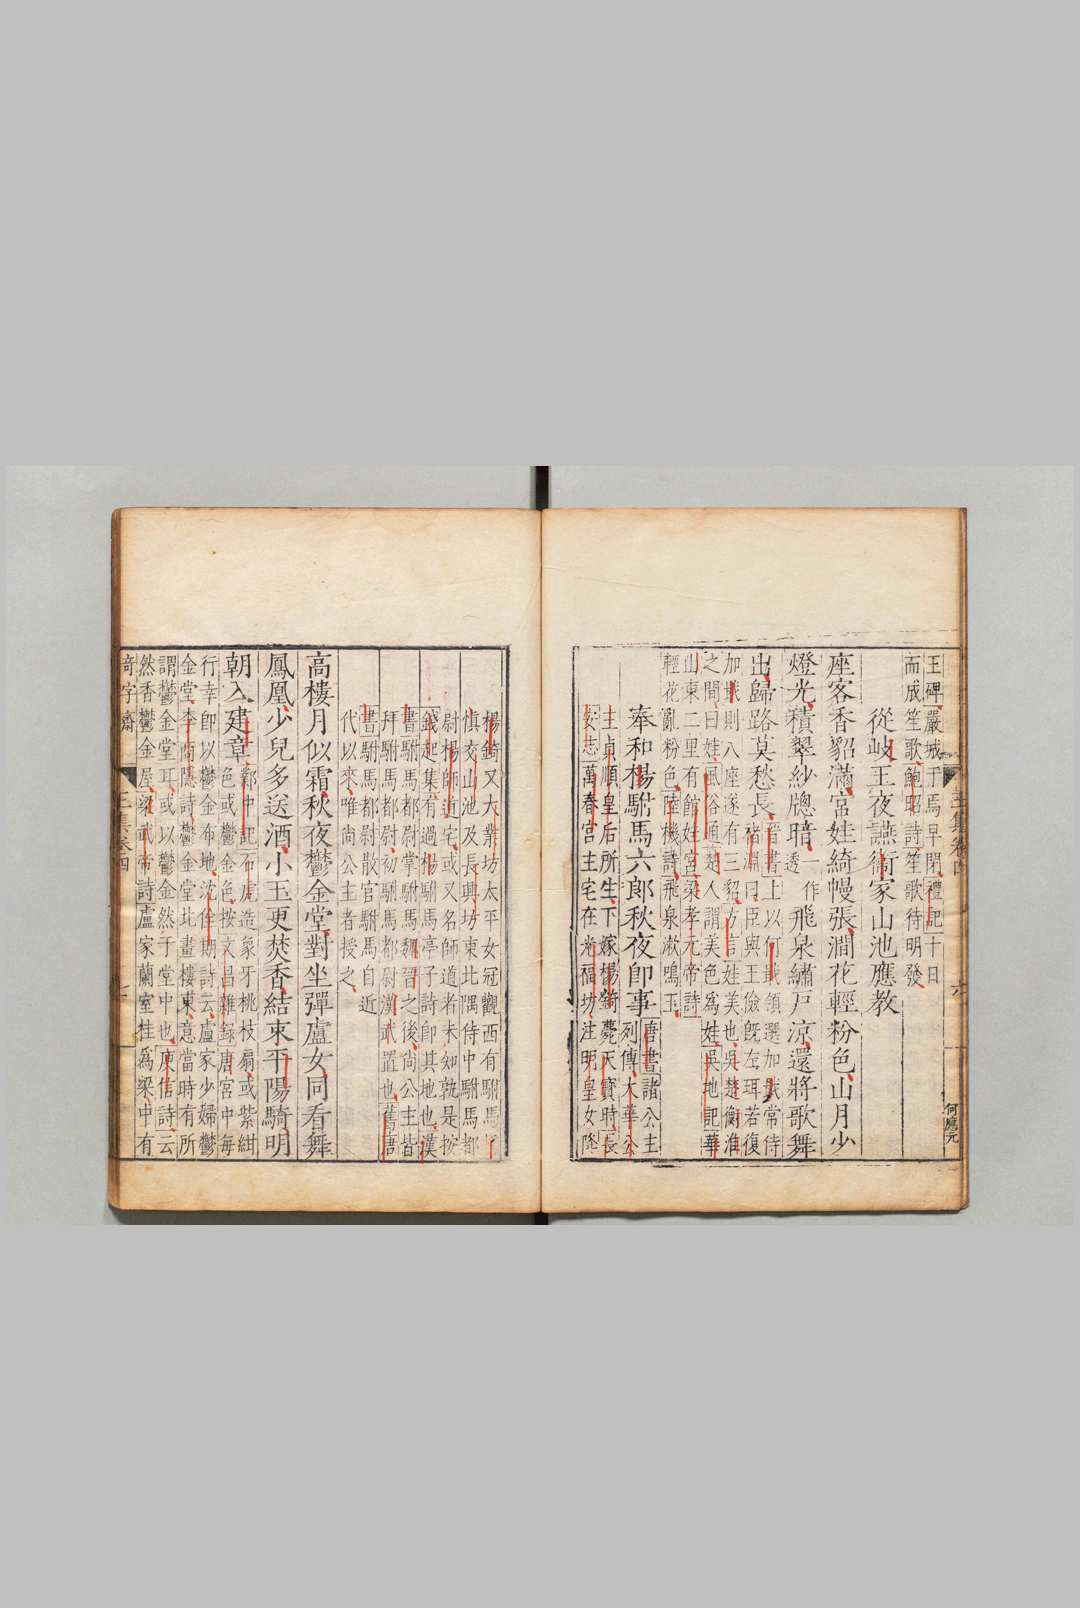 王碑嚴城于焉早閉禮記十日
而成笙歌鮑昭詩笙歌待明發
從岐王夜讌衞家山池應教
座客香貂滿宮娃綺幔張澗花輕粉色山月少
燈光積翠紗牕暗一作透飛泉繡戶涼還將歌舞
出歸路莫愁長晉書上以何戢領選加戢常侍
褚淵曰臣與王儉旣左珥若復
加戢則八座遂有三貂方言娃美也吳楚衡淮
之間曰娃風俗通楚人謂美色爲娃吳地記華
山東二里有館娃宮梁孝元帝詩
輕花亂粉色陸機詩飛泉漱鳴玉
奉和楊駙馬六郎秋夜卽事唐書諸公主
列傳太華公
主貞順皇后所生下嫁楊錡薨天寶時長
安志萬春宮主宅在光福坊注明皇女降
王集卷四
六
何應元
楊錡又大業坊太平女冠觀西有駙馬
愼交山池及長興坊東北隅侍中駙馬都
尉楊師道宅或又名師道者未知孰是按
錢起集有過楊駙馬亭子詩卽其地也漢
書駙馬都尉掌駙馬魏晉之後尚公主皆
拜駙馬都尉初駙馬都尉漢武置也舊唐
書駙馬都尉散官駙馬自近
代以來唯尚公主者授之
高樓月似霜秋夜鬱金堂對坐彈盧女同看舞
鳳凰少兒多送酒小玉更焚香結束平陽騎明
朝入建章鄴中記石虎造象牙桃枝扇或紫紺
色或鬱金色按文昌雜錄唐宮中每
行幸卽以鬱金布地沈佺期詩云盧家少婦鬱
金堂李商隱詩鬱金堂北畫樓東意當時有所
謂鬱金堂耳或以鬱金然于堂中也庾信詩云
然香鬱金屋梁武帝詩盧家蘭室桂爲梁中有
奇字齋
王集卷四
七